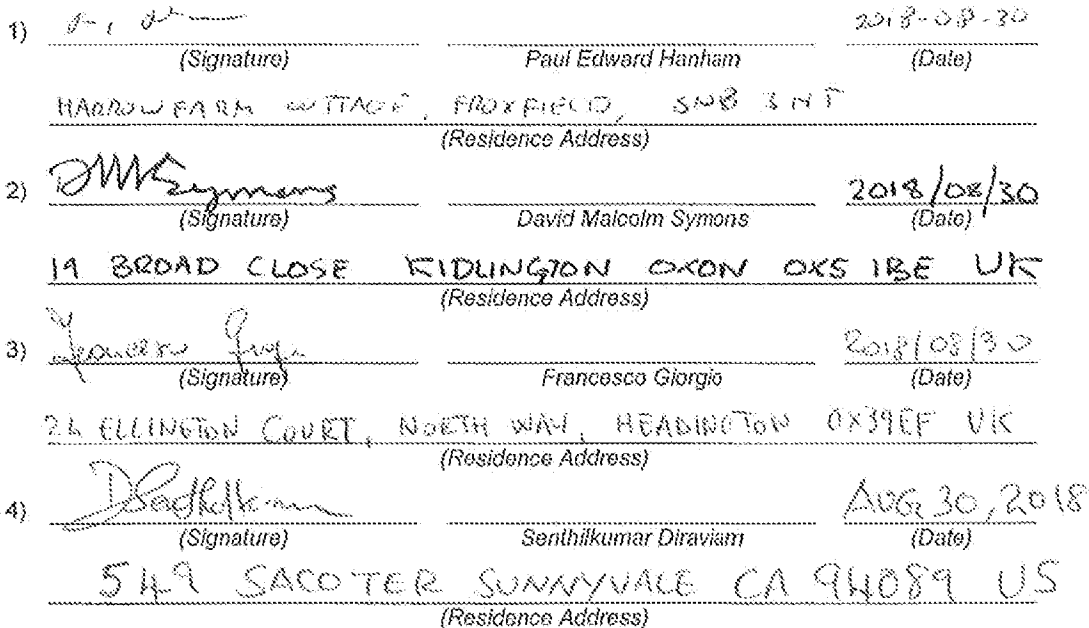 1) 2018-08-30
(Signature) Paul Edward Hanham (Date)
HARROW FARM COTTAGE, FROXFIELD, SN8 3NT
(Residence Address)
2) DMSymons 2018/08/30
(Signature) David Malcolm Symons (Date)
19 BROAD CLOSE KIDLINGTON OXON OX5 1BE UK
(Residence Address)
3) Francesco 2018/08/30
(Signature) Francesco Giorgio (Date)
ELLINGTON COURT, NORTH WAY, HEADINGTON OX39EF UK
(Residence Address)
4) AUG 30, 2018
(Signature) Senthilkumar Diraviam (Date)
549 SACO TER SUNNYVALE CA 94089 US
(Residence Address)